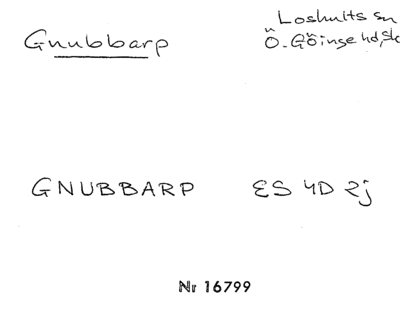 Gnubbarp
Loshults sn
Ö. Göinge hd, Sk
GNUBBARP ES 4D 2j
Nr 16799